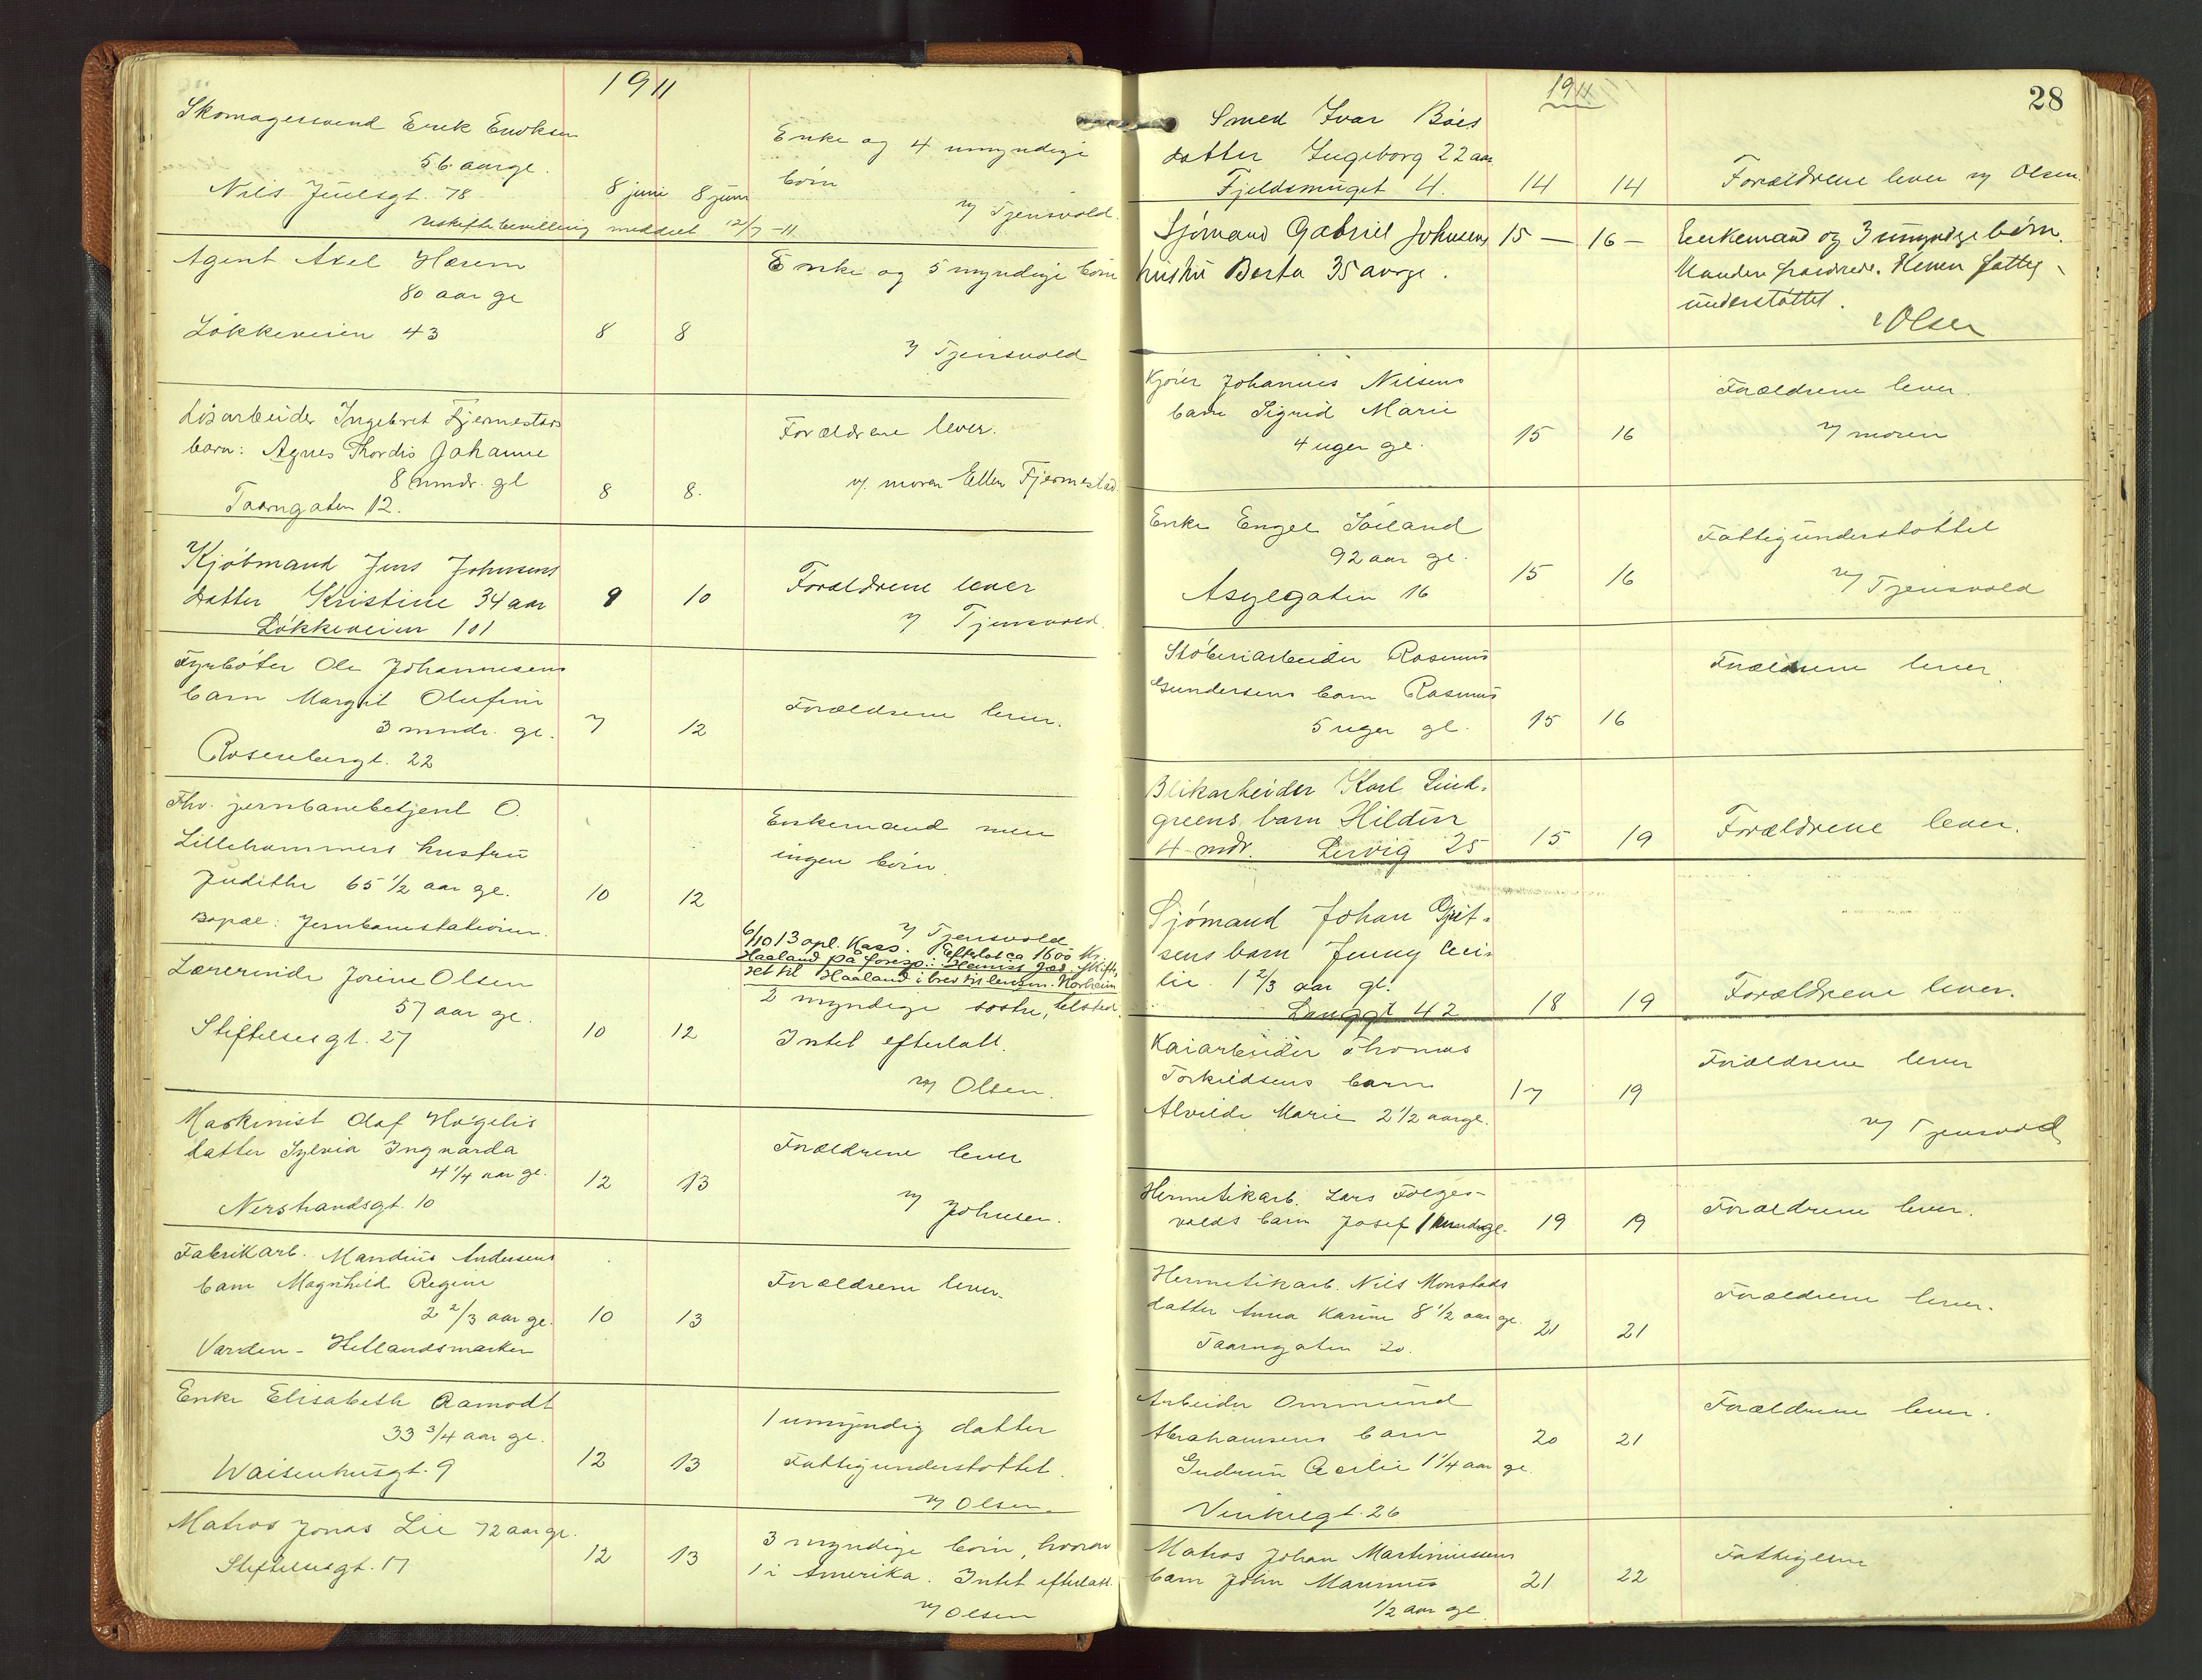 1911
Skomagersvend Erik Eriksen
56 aar gl.
Nils Juelsgt. 78
8 juni 8 juni
Enke og 4 umyndige
børn
v/ Tjensvold.
Uskiftebevilling meddelt 12/7 -11.
Agent Axel Hærem
80 aar gl
Løkkeveien 43
8 8
Enke og 5 myndige børn
v/ Tjensvold
Løsarbeider Ingebret Fjermestads
barn: Agnes Thordis Johanne
8 mndr. gl
Taarngaten 12.
8 8.
Forældrene lever.
v/ moren Ellen Fjermestad
Kjøbmand Jens Johnsens
datter Kristine 34 aar
Løkkeveien 101
9 10
Forældrene lever
v/ Tjensvold.
Fyrbøter Ole Johannesens
barn Margit Olufine
3 mndr. gl.
Rosenbergt. 22
7 12
Forældrene lever.
Fhv. jernbanebetjent O.
Lillehammers hustru
Judithe 65 1/2 aar gl.
Bopæl: Jernbanestationen.
10 12
Enkemand men
ingen børn.
v/ Tjensvold.
6/10 13 opl. Kass. Efterlot ca 1600 Kr.
Haaland på foresp.:
det til Haaland i brev til lensm. Norheim
Lærerinde Jorine Olsen
57 aar gl.
Stiftelsesgt. 27
10 12
2 myndige søstre, tilsted
Intet efterlatt.
v/ Olsen.
Maskinist Olaf Høgelis
datter Sylvia Ingvarda
4 1/4 aar gl.
Nerstrandsgt. 10
12 13
Forældrene lever
v/ Johnsen.
Fabrikarb. Mandius Andersens
barn Magnhild Regine
2 2/3 aar gl.
Varden - Hetlandsmarken
10 13
Forældrene lever.
Enke Elisabeth Aamodt
33 3/4 aar gl.
Waisenhusgt. 9
12 13
1 umyndig datter
Fattigunderstøttet.
v/ Olsen.
Matros Jonas Lie 72 aar gl.
Stiftelsesgt. 17
12 13
3 myndige børn, hvorav
1 i Amerika. Intet efterlatt.
v/ Olsen
1911
28
Smed Ivar Bøes
datter Ingeborg 22 aar
Fjeldsmuget 4.
14 14
Forældrene lever v/ Olsen.
Sjømand Gabriel Johnsens
hustru Berta 35 aar gl.
15 — 16 —
Enkemand og 3 umyndige børn.
Manden fraværende. Konen fattig
understøttet.
v/ Olsen
Kjører Johannes Nilsens
barn Sigrid Marie
4 uger gl.
15 16
Forældrene lever.
v/ moren
Enke Engel Soiland
92 aar gl.
Asylgaten 16
15 16
Fattigunderstøttet
v/ Tjensvold
Støberiarbeider Rasmus
Gundersens barn Rasmus
5 uger gl.
15 16
Forældrene lever.
Blikarbeider Karl Lind-
greens barn Hildur
4 mdr. Lervig 25
15 19
Forældrene lever.
Sjømand Johan
sens barn Jenny Ceci-
lie 1 2/3 aar gl.
Langgt 42
18 19
Forældrene lever.
Kaiarbeider Thomas
Torkildsens barn
Alvilde Marie 2 1/2 aar gl.
17 19
Forældrene lever
v/ Tjensvold
Hermetikarb. Lars Følges-
volds barn Josef 1 mnd. gl.
19 19
Forældrene lever.
Hermetikarb. Nils Monstads
datter Anna Karine 8 1/2 aar gl.
Taarngaten 20.
21 21
Forældrene lever.
Arbeider Ommund
Abrahamsens barn
Gudrun Cecilie 1 1/4 aar gl.
Vinkelgt. 26
20 21
Forældrene lever.
Matros Johan Martiniussens
barn John Marinius
1/2 aar gl.
21 22
Fattiglem